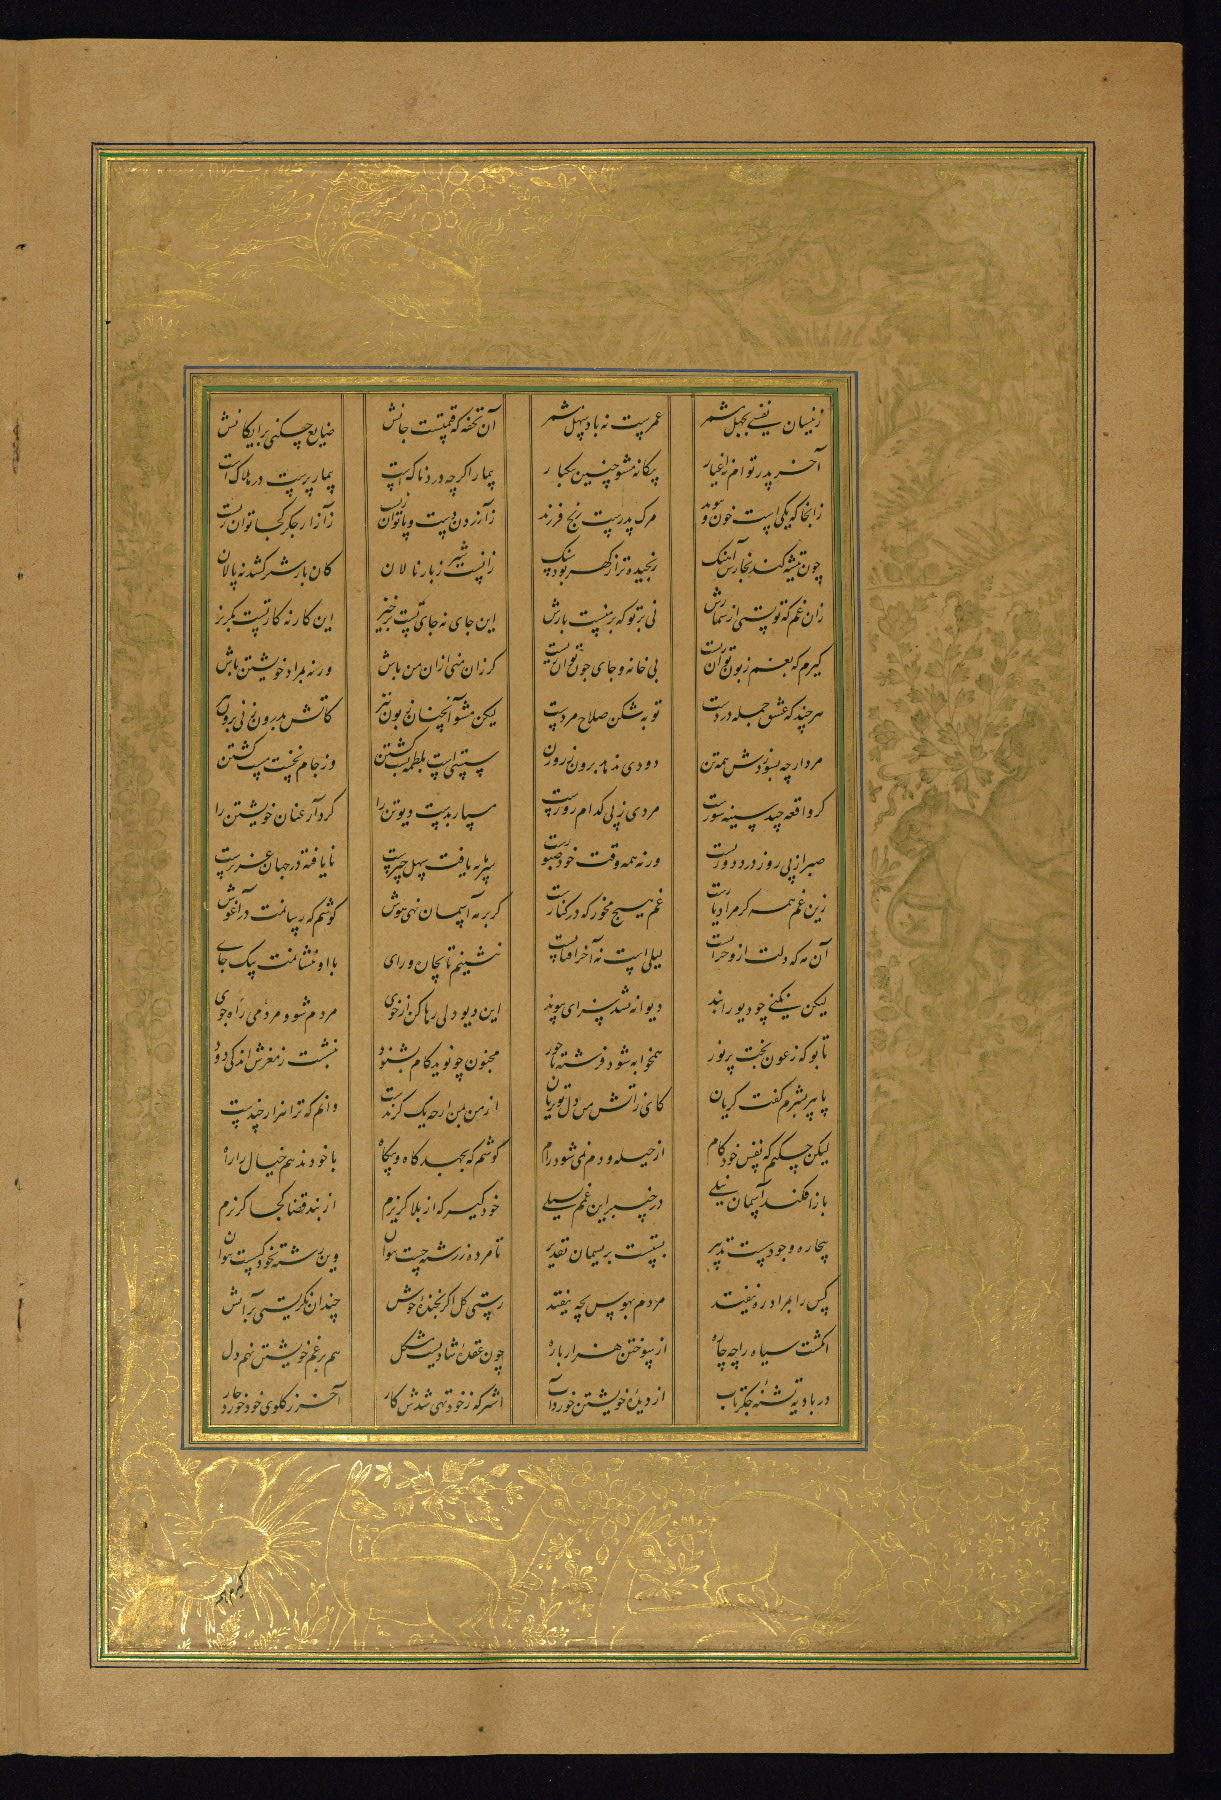 زینسان نفسی بجهل مشمر عمریست نه باد سهل مشمر آن تحفه که قیمتست جانش ضایع چکنی برایکانش
آخر پدر توام نه اغیار بیکانه مشو چنین بیکبار بیمار اگر چه دردناکست بیمار پرست در هلاکست
زانجا که یکیست خون و پیوند مرک پدرست رنج فرزند زآزردن دست و پا توان زیست زآزار جگر کجا توان زیست
چون تیشه کند نجارش آهنک رنجیده تر از گهر بود سنک زانپشت شیر زبار نالان کان بار شکر کشد نه پالان
زان غم که تو نیستی از شمارش نی بر تو که بر منست بارش این جای نه جای تست برخیز این کار نه کار تست بگریز
گیرم که بغم زبون توان زیست بی خانه و جای چون توان زیست گر زان منی ازان من باش ور نه بمراد خویشتن باش
هر چند که عشق جمله دردست توبه شکن صلاح مردست لیکن مشو آنچنان زبون نیز کاتش ز درون زنی برون
مرد ارچه بسوزدش همه تن دودی ندهد برون ز روزن سستی است بلطمه پست گشتن وز جام نخست مست گشتن
گر واقعه چند سینه سوزست مردی ز پی کدام روزست مسپار بدست دیو تن را گرد آر عنان خویشتن را
صبر از پی روز درد دوریست ورنه همه وقت خود صبوریست سرمایه یافت سهل چیزست نایافته در جهان عزیزست
زین غم همه گر مراد یارست غم هیچ مخور که در کنارست گر بر مه آسمان نهی هوش کوشم که رسانمت در آغوش
آن مه که دلت ازو خرابست لیلی است نه آخر آفتابست ننشینم تا بچاره و رای با او ننشانمت بیک جای
لیکن نکنی چو دیو را بند دیوانه نشد سزای پیوند این دیو دلی رها کن از خوی مردم شو و مردمی ز ره جوی
تا بو که ز عون بخت پرنور همخوابه شود فرشته تا حور مجنون چو نوید کام بشنود بنشست ز مغزش اندکی دود
با پیر بشرم گفت گریان کای ز آتش من دل تو بریان از من بمن ار چه یک گزندست دانم که ترا هزار چندست
لیکن چکنم که نفس خود کام از حیله و دم نمی شود رام کوشم که بجهد گاه و بیگاه با خود ندهم خیال را راه
باز افکند آسمان نیلی در چنبر این غمم بسیلی خود گیر که از بلا گریزم از بند قضا کجا گریزم
بیچاره وجود سست تدبیر بستست بریسمان تقدیر تا مرده ز رشته جست نتوان وین رشته بخود گسست نتوان
کس را بمراد ره نیفتد مردم بهوس بچه نیفتد رستی گل اگر بخنده خوش چندان نگریستی بر آتش
انگشت سیاه را چه چاره از سوختن هزار باره چون عقده شادیست مشکل هم بر غم خویشتن نهم دل
در بادیه تشنه جگرتاب از دیده خویشتن خورد آب اشتر که ز خود تهی شدش کار آخر ز گلوی خود خورد خار
گیرم که